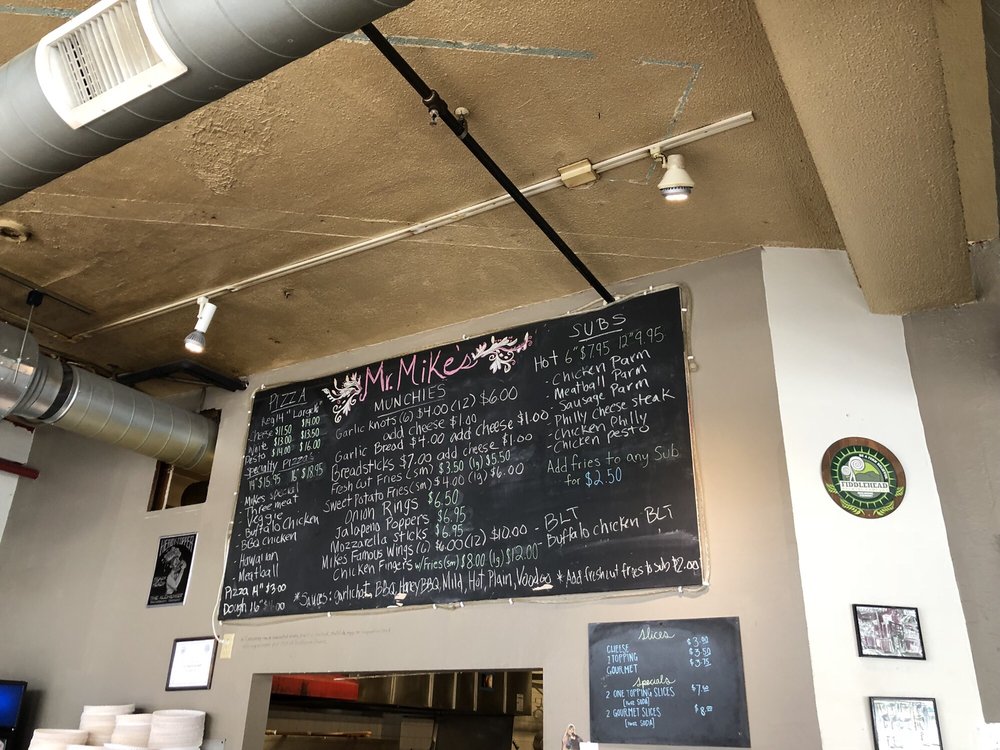 Mr. Mike's
PIZZA
Reg 14" Large 16"
Cheese $11.50 $14.00
White $13.00 $13.50
Pesto $14.00 $16.00
Specialty Pizzas
14" $15.95 16" $18.95
Mikes Special
- Three meat
- Veggie
- Buffalo Chicken
- BBQ chicken
- Hawaiian
- Meatball
Pizza 14" $3.00
Dough 16"
MUNCHIES
Garlic Knots (6) $4.00 (12) $6.00
add cheese $1.00
Garlic Bread $4.00 add cheese $1.00
Breadsticks $7.00 add cheese $1.00
Fresh Cut Fries (sm) $3.50 (lg) $5.50
Sweet Potato Fries (sm) $4.00 (lg) $6.00
Onion Rings $6.50
Jalapeno Poppers $6.95
Mozzarella sticks $6.95
Mikes Famous Wings (6) $6.00 (12) $10.00
Chicken Fingers w/ Fries (sm) $8.00 (lg) $12.00
*Sauces: garlichot, BBQ, Honey BBQ, Mild, Hot, Plain, Voodoo
SUBS
Hot 6" $7.95 12" 9.95
- Chicken Parm
- Meatball Parm
- Sausage Parm
- Philly cheese steak
- Chicken Philly
- Chicken pesto
Add fries to any Sub
for $2.50
- BLT
- Buffalo chicken BLT
* Add fresh cut fries to sub $2.00
Slices
CHEESE $3.00
1 TOPPING $3.50
GOURMET $3.75
Specials
2 ONE TOPPING SLICES
[two SODA]
2 GOURMET SLICES
[two SODA]
FIDDLEHEAD
HEADY TOPPER
THE ALCHEMIST